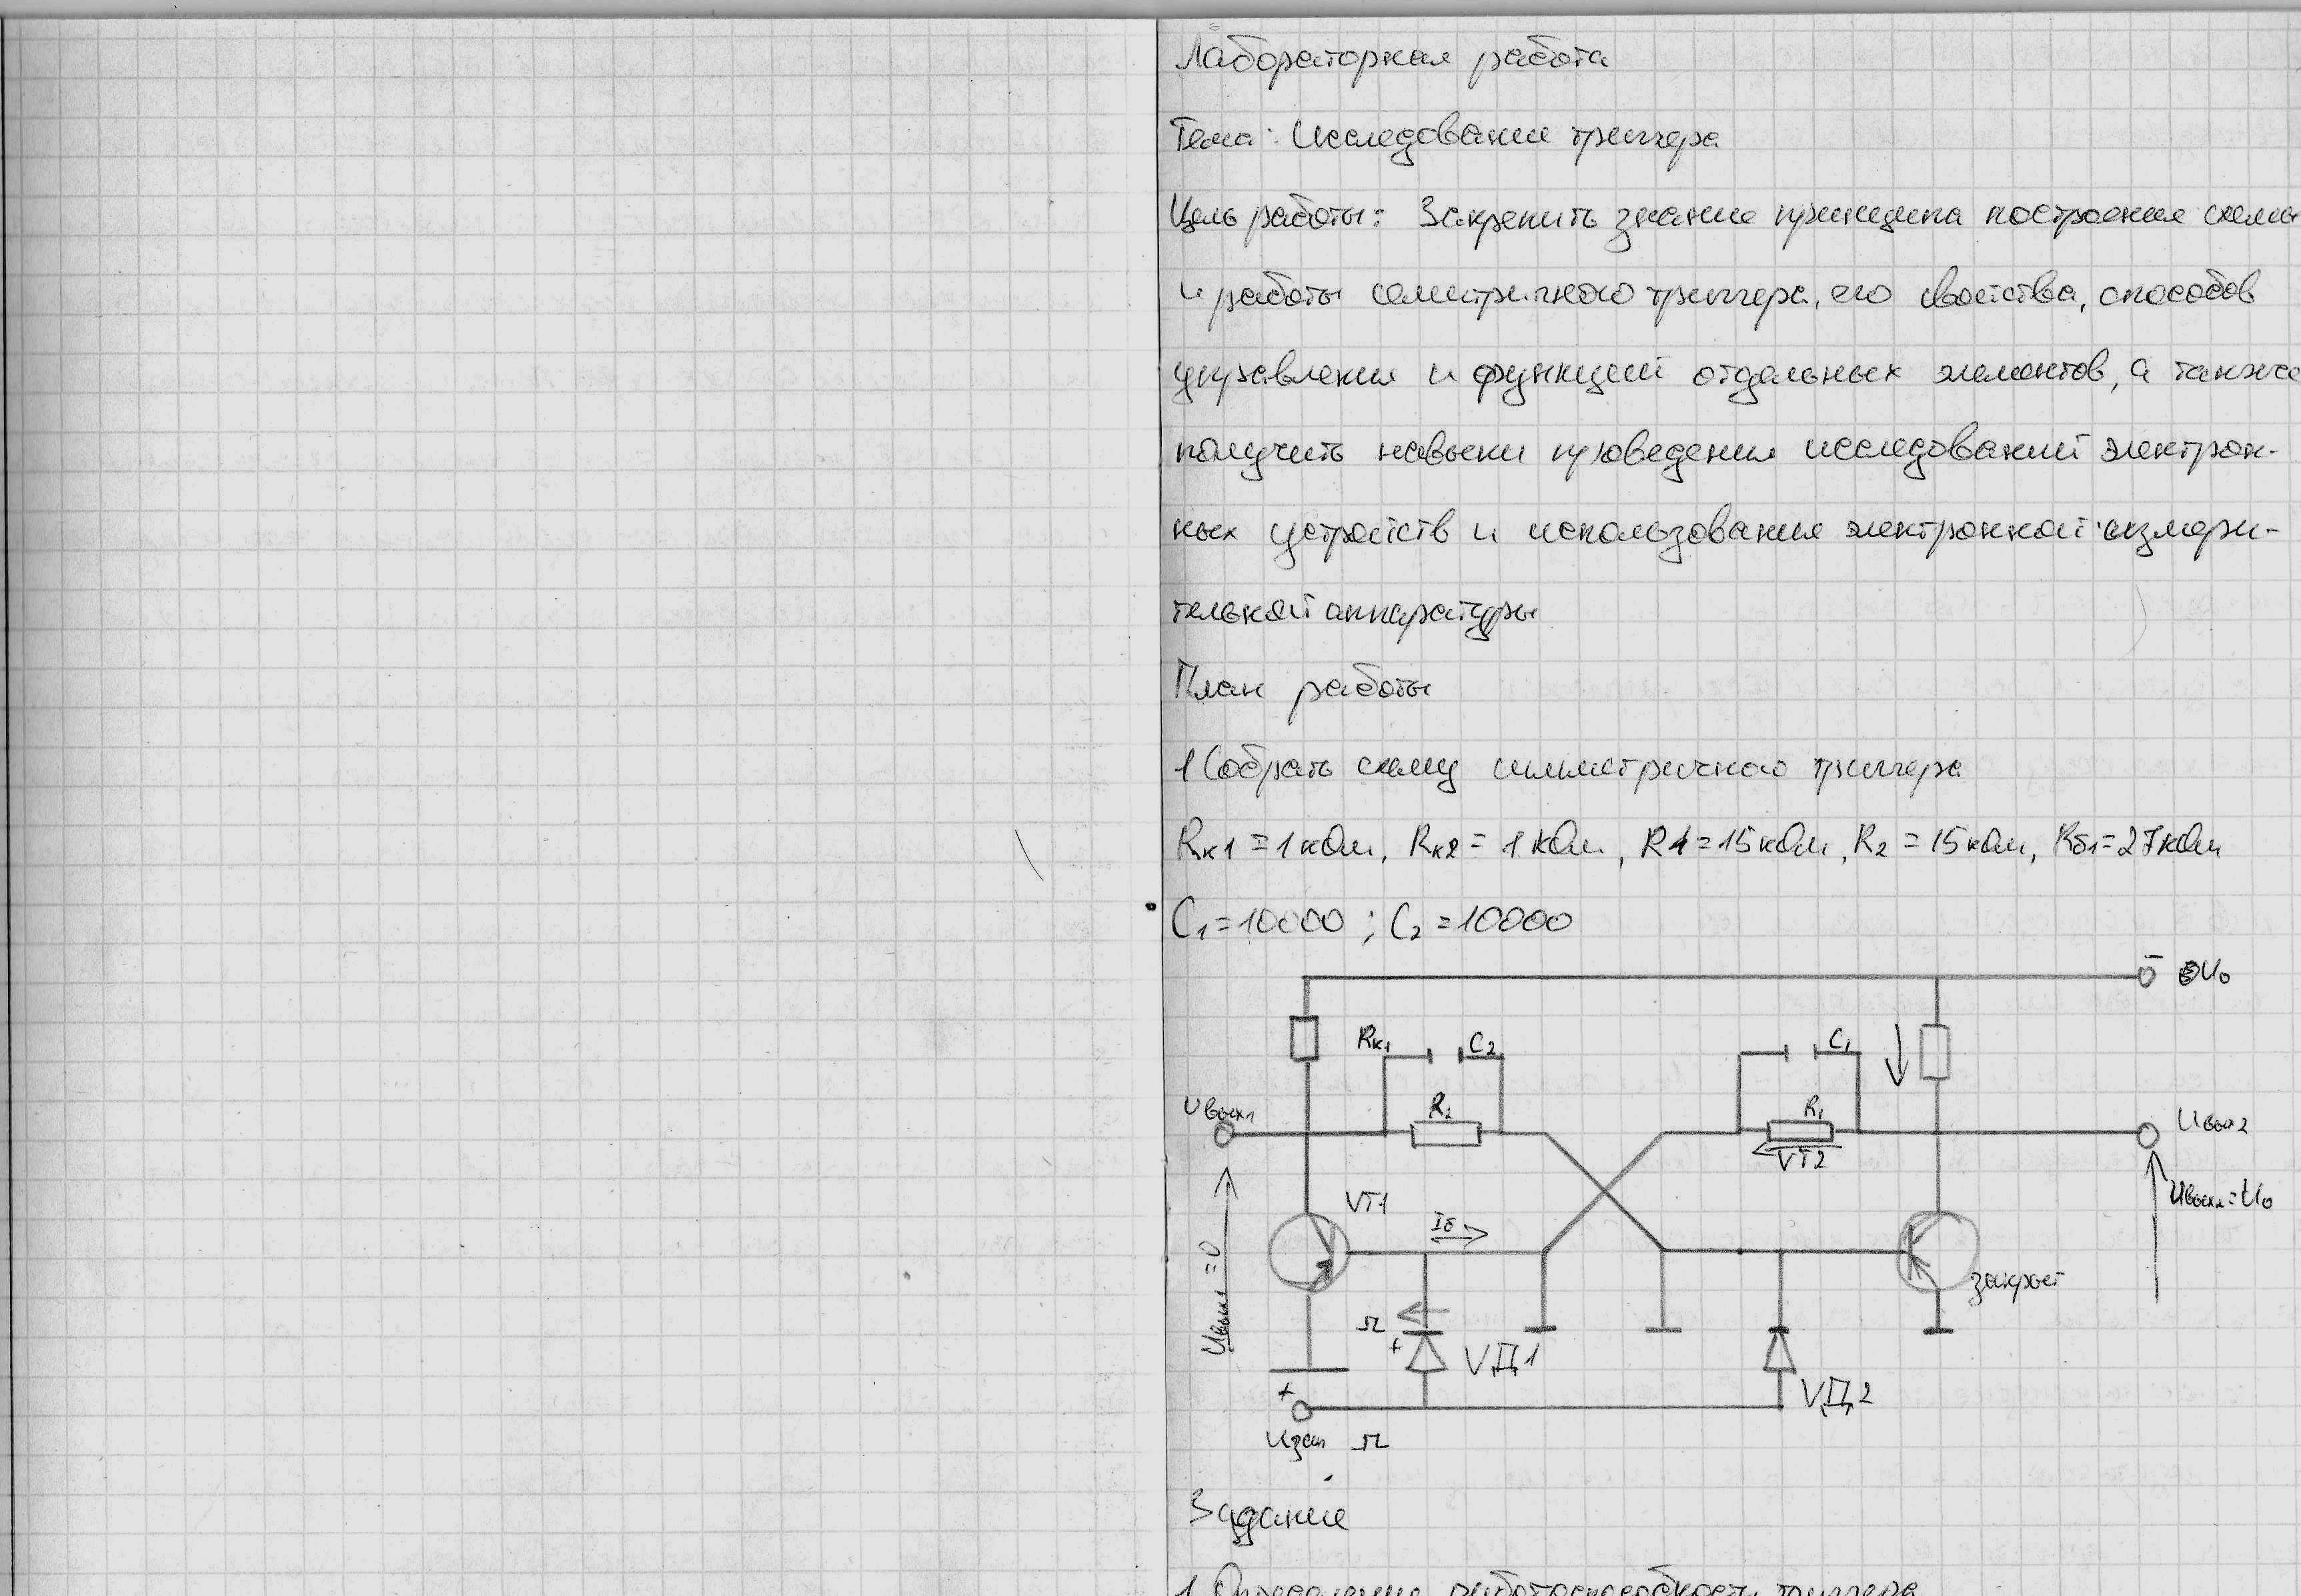 Лабораторная работа
Тема: Исследование триггера
Цель работы: Закрепить знание принципа построения схемы
и работы семетричного триггера, его свойства, способов
управления и функций отдельных элементов, а также
получить навыки проведения исследований электрон-
ных устройств и использования электронной измери-
тельной аппаратуры
План работы
1 Собрать схему симметричного триггера
Rк1 = 1 кОм, Rк2 = 1 кОм, R1 = 15 кОм, R2 = 15 кОм, Rб1 = 27 кОм
C1 = 10000 ; C2 = 10000
- U0
Rк1 C2 C1
Uвых1 R2 R1 Uвых2
VT2
VT1 Iб Uвых2 = U0
Uвых1 = 0
закрыт
+ VД1
VД2
+
Uзап
Задание
1 Определение работоспособности триггера